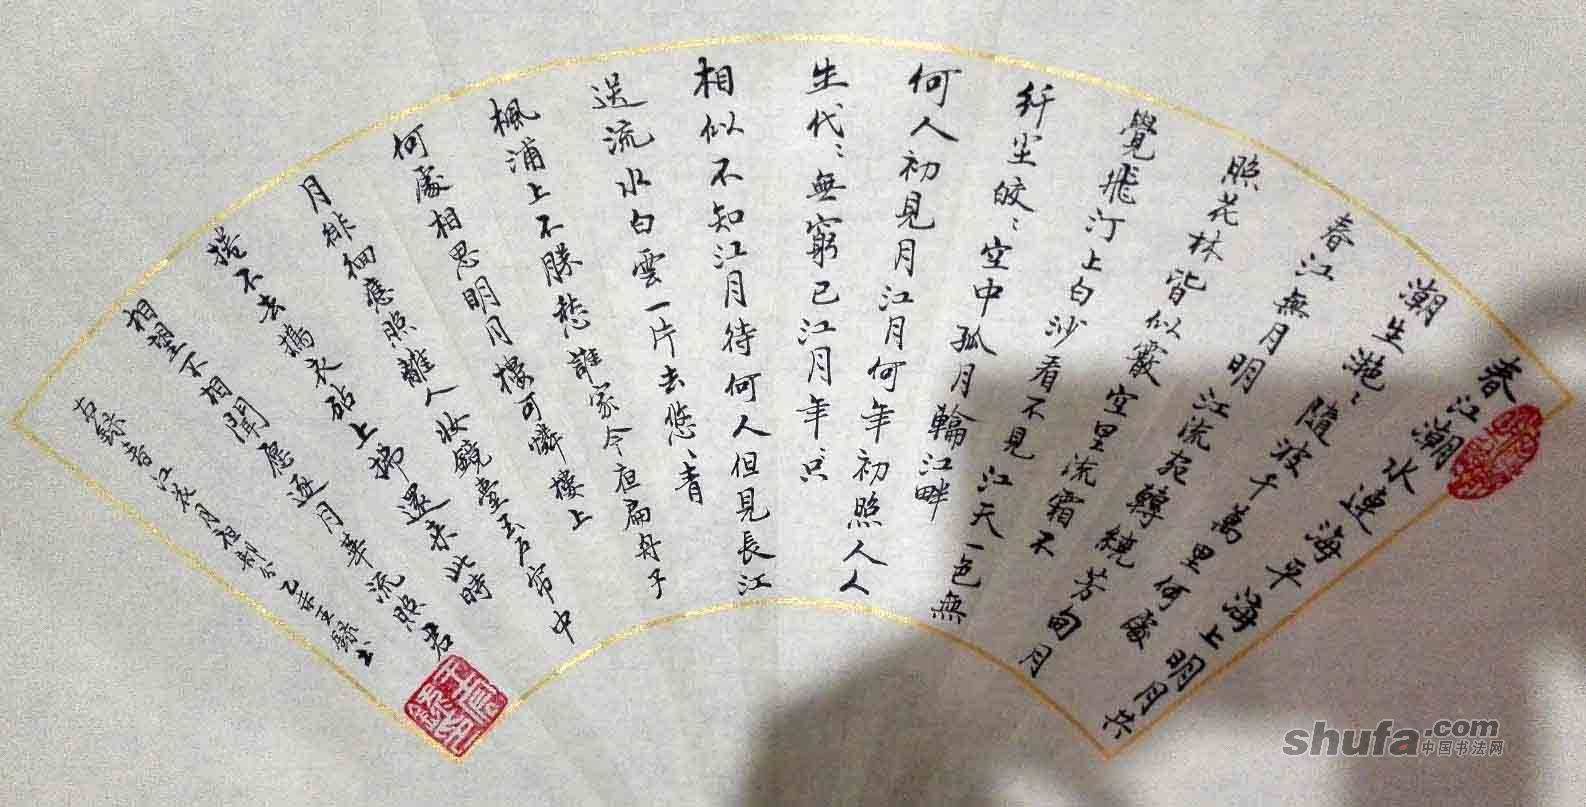 春江潮水連海平海上明月共
潮生灩〻隨波千萬里何處
春江無月明江流宛轉繞芳甸月
照花林皆似霰空里流霜不
覺飛汀上白沙看不見江天一色無
纤尘皎〻空中孤月輪江畔
何人初見月江月何年初照人人
生代〻無窮已江月年〻只
相似不知江月待何人但見長江
送流水白雲一片去悠〻青
楓浦上不勝愁誰家今夜扁舟子
何處相思明月樓可憐樓上
月徘徊應照離人妝鏡臺玉戶帘中
捲不去擣衣砧上拂還來此時
相望不相聞愿逐月華流照君
右錄春江花月夜 乙未 錄書
shufa.com
中国书法网